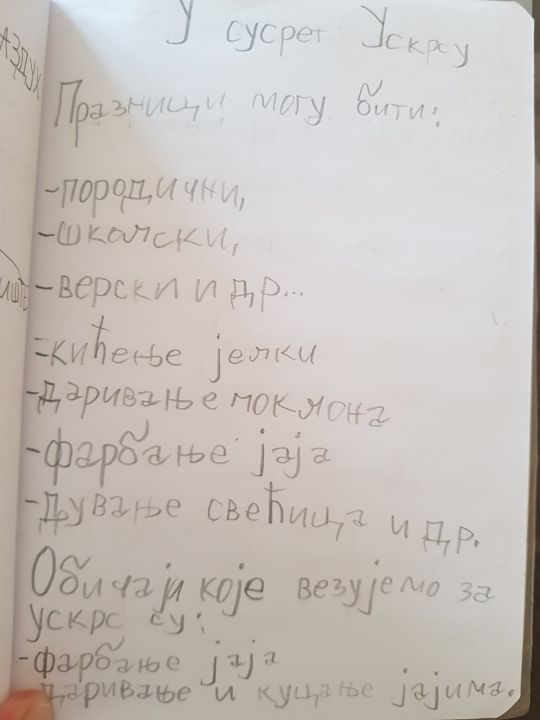 У сусрет Ускрсу
Празници могу бити:
-породични,
-школски,
-верски и др...
=кићење јелки
-даривање поклона
-фарбање јаја
-дување свећица и др.
Обичаји које везујемо за
ускрс су:
-фарбање јаја
даривање и куцање јајима.
АЗДУХ
ИШТЕ